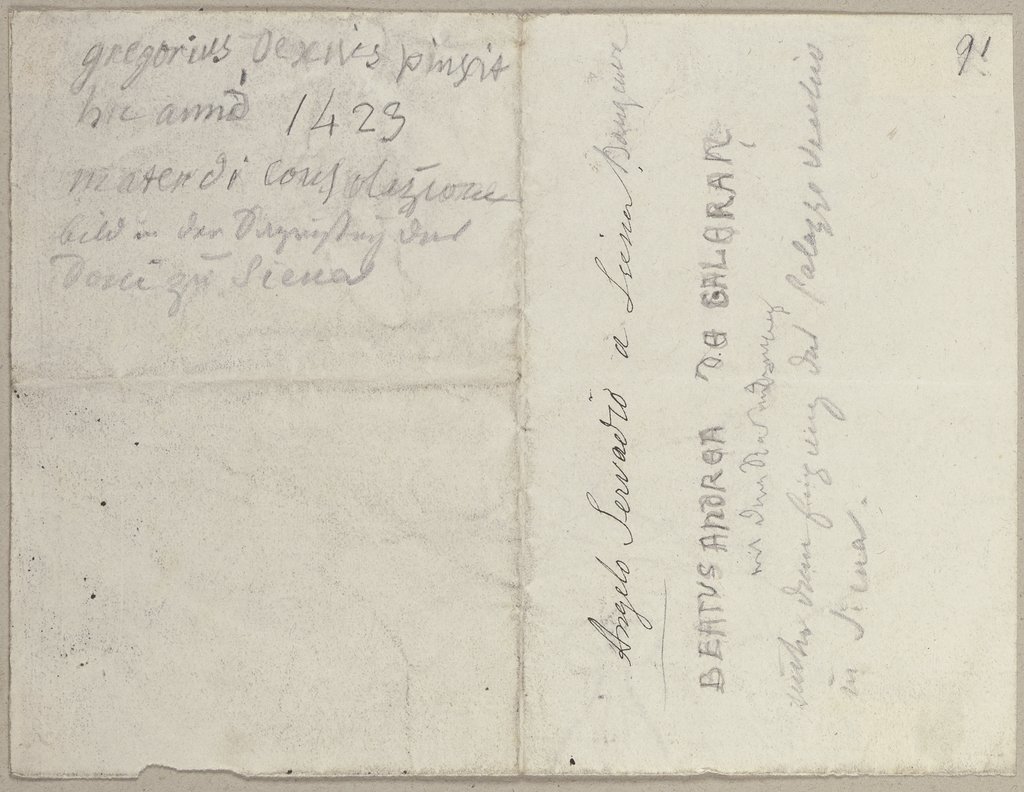 gregorius de senis pinsit
hic anno 1423
mater di consolazione
bild in der Sagristey des
Domes zu Siena
91
Angelo Servadio à Siena Banquier
BEATUS ANDREA DE GALERAN
mit dem
unter dem Eingang des Palazzo
in Siena.